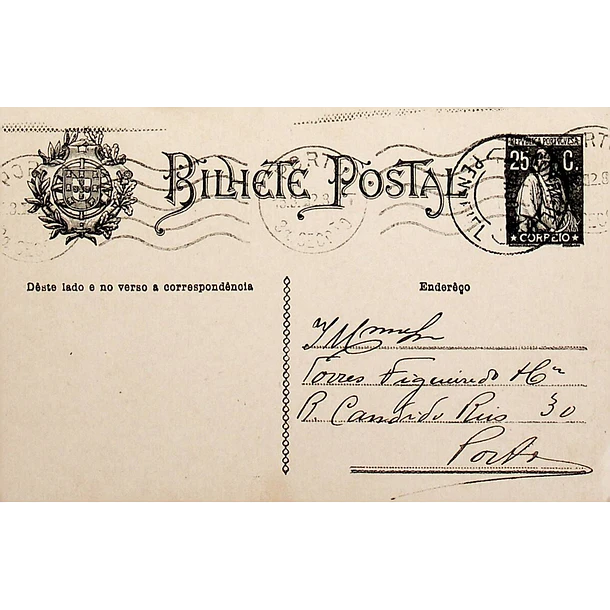 BILHETE POSTAL
REPUBLICA PORTUGUESA
25 C.
CORREIO
PENAFIEL
Dêste lado e no verso a correspondência
Enderêço
Torres Figueiredo & Cª
R. Candido Reis 30
Porto